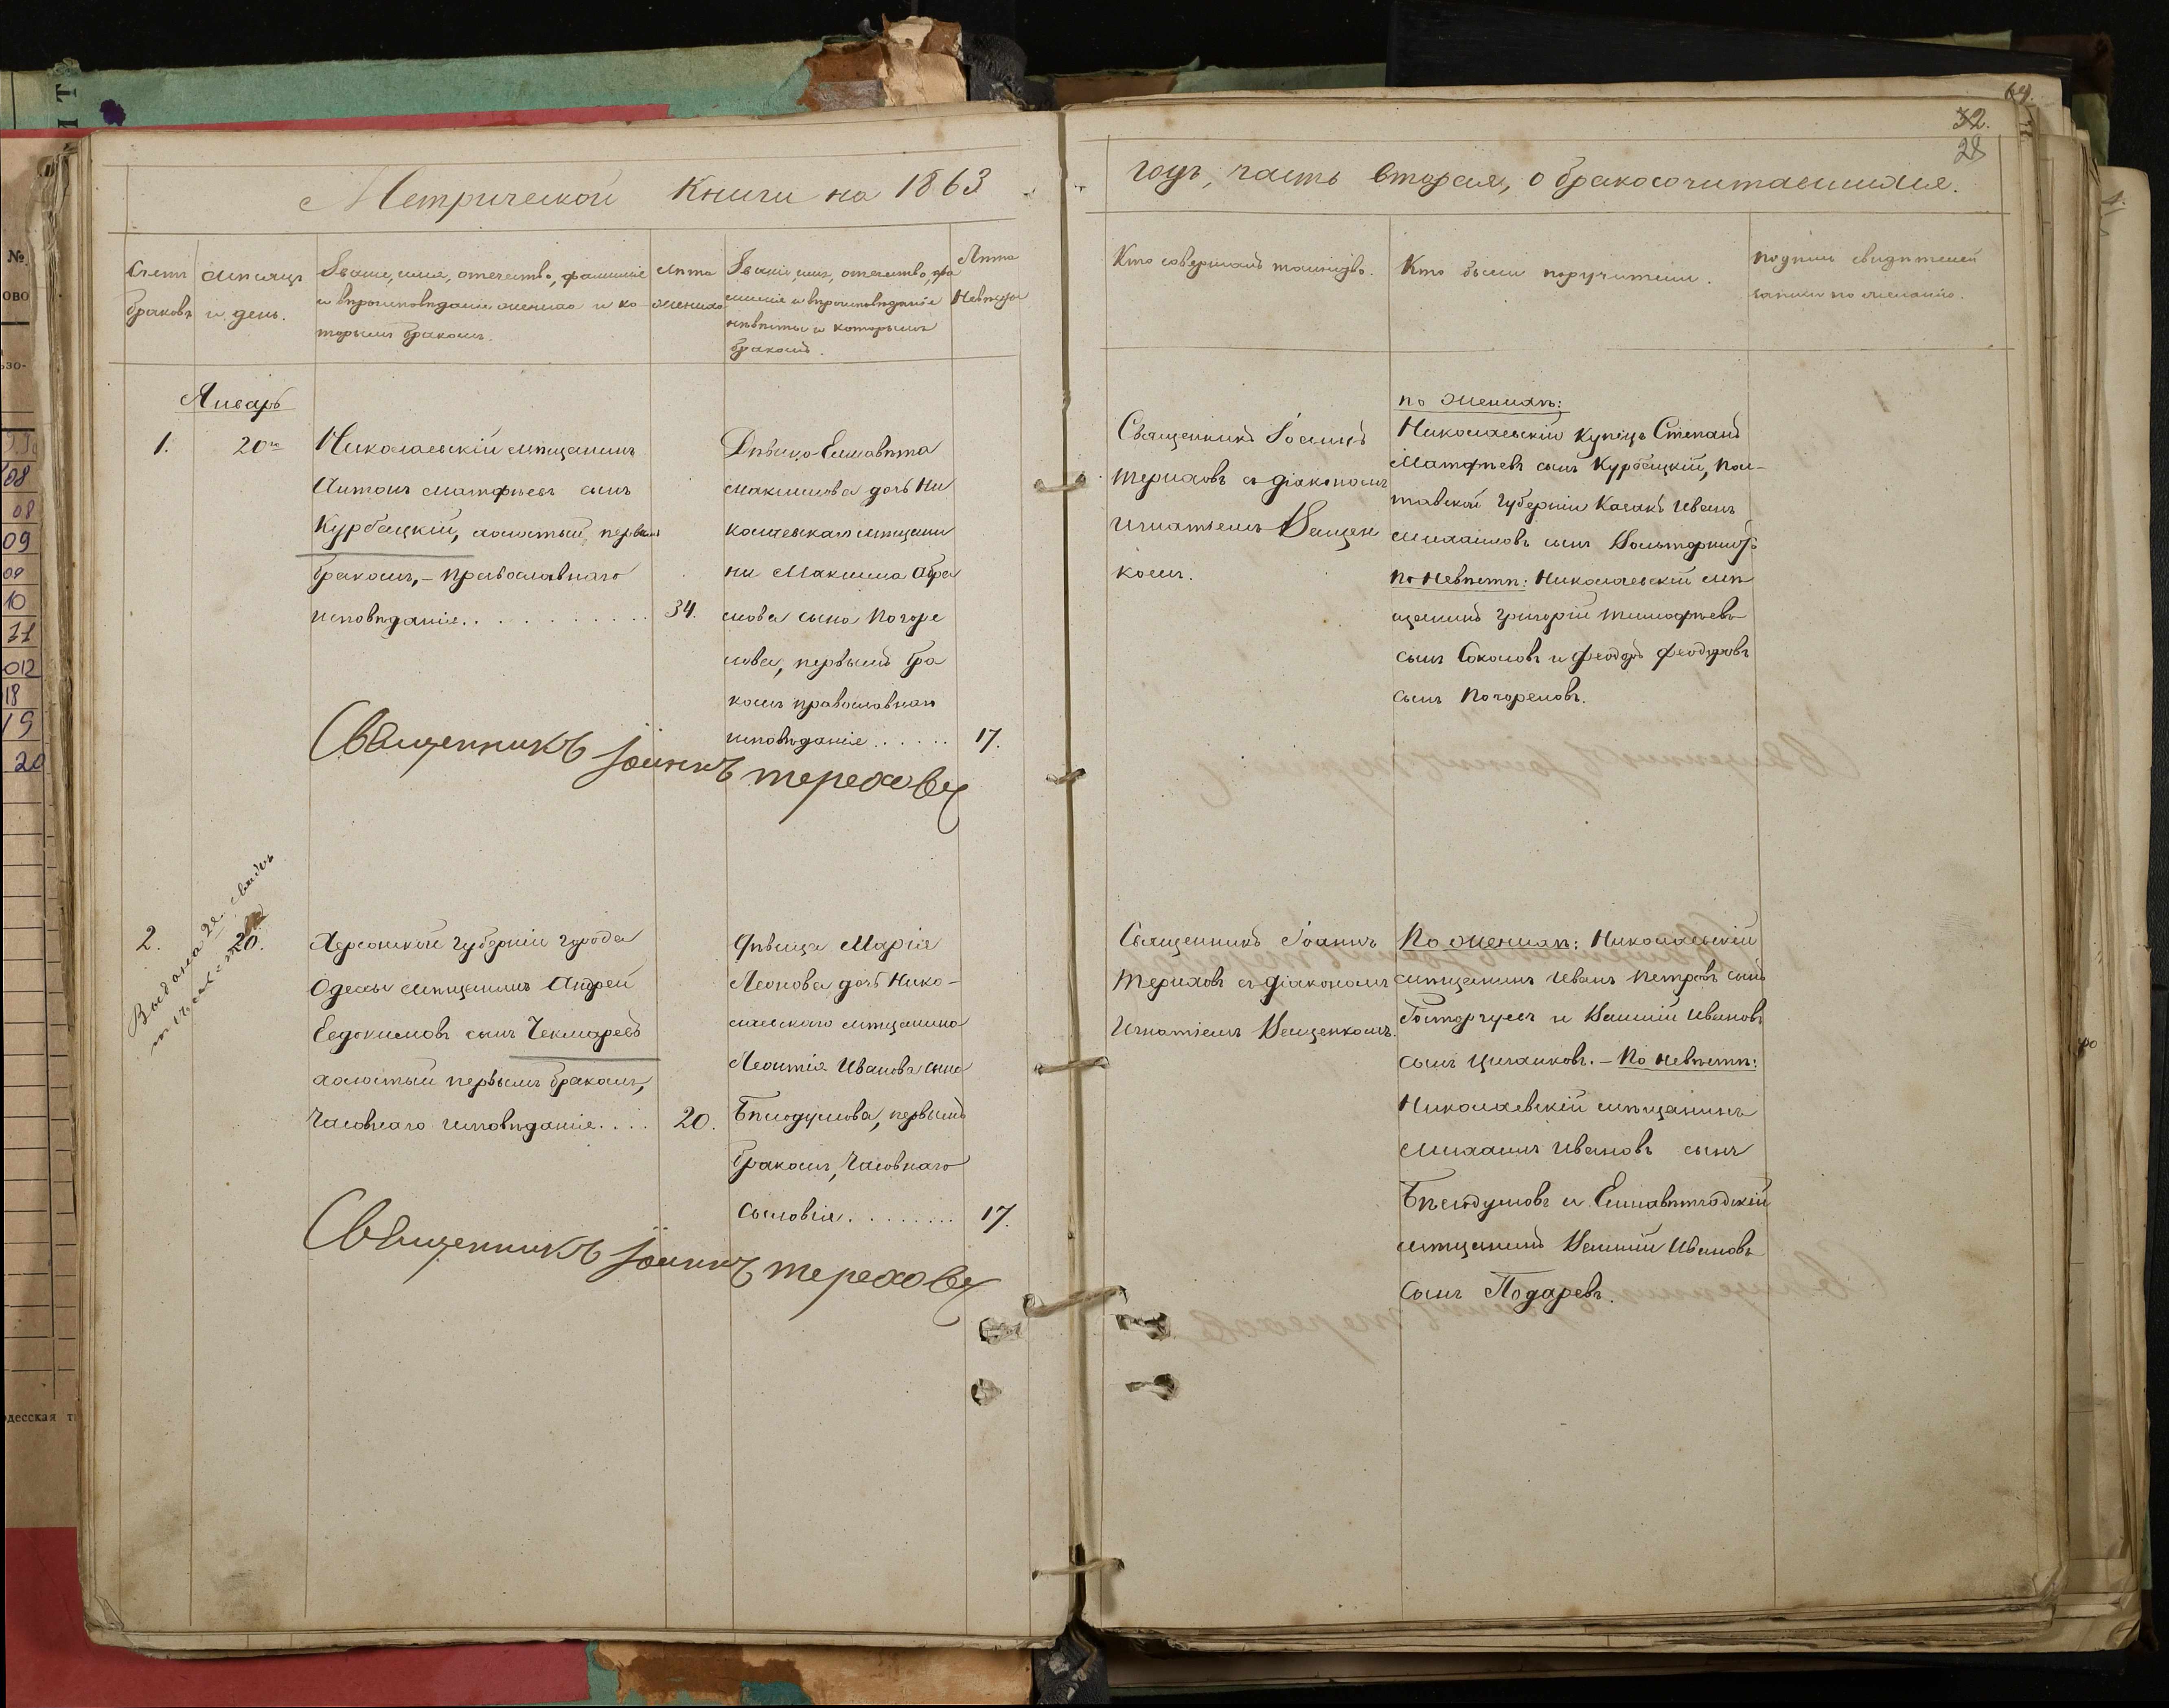 Метрической Книги на 1863
годъ, часть вторая, о бракосочитавшихся.
64.
32.
28
Счетъ
браковъ
Мѣсяцъ
и день.
Званіе, имя, отечество, фамилія
и вѣроисповѣданіе жениха и ко-
торымъ бракомъ.
Лѣта
жениха
Званіе, имя, отечество, фа
милія и вѣроисповѣданіе
невѣсты и которымъ
бракомъ.
Лѣта
Невѣсты
Кто совершалъ таинство.
Кто были поручители.
подпись свидѣтелей
записи по желанію.
Январь
1.
20го
Николаевскій мѣщанинъ
Антонъ Матфѣевъ сынъ
Курбацкій, холостый первымъ
бракомъ, – православнаго
исповѣданія.
34.
Дѣвица Елисавѣта
Максимова дочь Ни
колаевскаго мѣщани
на Максима Абра
мова сына Погоре
лова, первымъ бра
комъ православнаго
исповѣданія
17.
Священникъ Іоаннъ
Тераховъ съ діакономъ
Игнатіемъ Ващен
комъ.
по женихѣ:
Николаевскій Купецъ Степанъ
Матфѣевъ сынъ Курбацкій, Пол-
тавской Губерніи Казакъ Иванъ
Михайловъ сынъ
по Невѣстѣ: Николаевскій мѣ
щанинъ Григорій Тимофѣевъ
сынъ Соколовъ и Феодоръ Феодоровъ
сынъ Погореловъ.
Священникъ Іоаннъ Тераховъ
2.
20.
Выдана 2я. свидѣ
Херсонской Губерніи города
Одессы мѣщанинъ Андрей
Евдокимовъ сынъ Чекмаревъ
холостый первымъ бракомъ,
Часовнаго исповѣданія
20.
Дѣвица Марія
Леонова дочь Нико-
лаевскаго мѣщанина
Леонтія Иванова сына
Бѣлодумова, первымъ
бракомъ, Часовнаго
Сословія
17.
Священникъ Іоаннъ
Тераховъ съ діакономъ
Игнатіемъ Ващенкомъ.
По женихѣ: Николаевскій
мѣщанинъ Иванъ Петровъ сынъ
и Василій Ивановъ
сынъ Цыганковъ. – По невѣстѣ:
Николаевскій мѣщанинъ
Михаилъ Ивановъ сынъ
Бѣлодумовъ и Елисавѣтградскій
мѣщанинъ Василій Ивановъ
сынъ Подаревъ.
Священникъ Іоаннъ Тераховъ